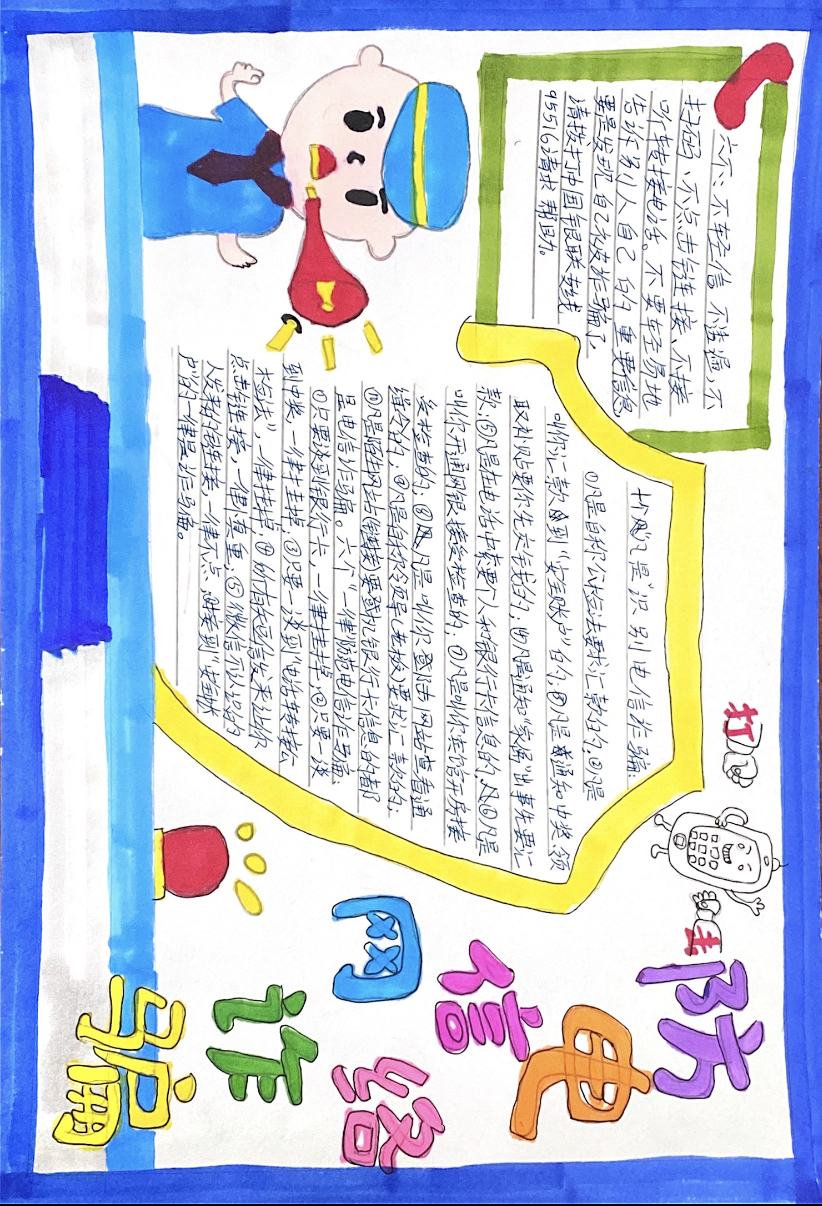 六不:不轻信 不透漏,不
扫码 不点击链接、不接
听转接电话。不要轻易地
告诉别人自己的重要信息
要是发现自己被诈骗了
请拨打中国银联热线
95516请求帮助。
十"凡"是识别电信诈骗:
①凡是自称公检法要求汇款的;②凡是
叫你汇款到"安全账户"的;③凡是通知中奖、领
取补贴要你先交钱的;④凡是通知"家属"出事先要汇
款;⑤凡是在电话中索要个人和银行卡信息的,⑥凡是
叫你开通网银接受检查的;⑦凡是叫你宾馆开房接
受检查的;⑧凡是叫你登陆网站查看通
缉令的;⑨凡是自称领导(老板)要求汇款的;
⑩凡是陌生网站(链接)要登记银行卡信息的都
是电信诈骗。六个"一律"防范电信诈骗:
①只要谈到银行卡,一律挂掉②只要一谈
到中奖,一律挂掉③只要一谈到"电话转接公
检法",一律挂掉,④所有短信发来让你
点击链接,一律慎重,⑤微信不认识的
人发来的链接,一律不点 ⑥谈到"安全账
户"的一律是诈骗。
打击
防电信网络诈骗